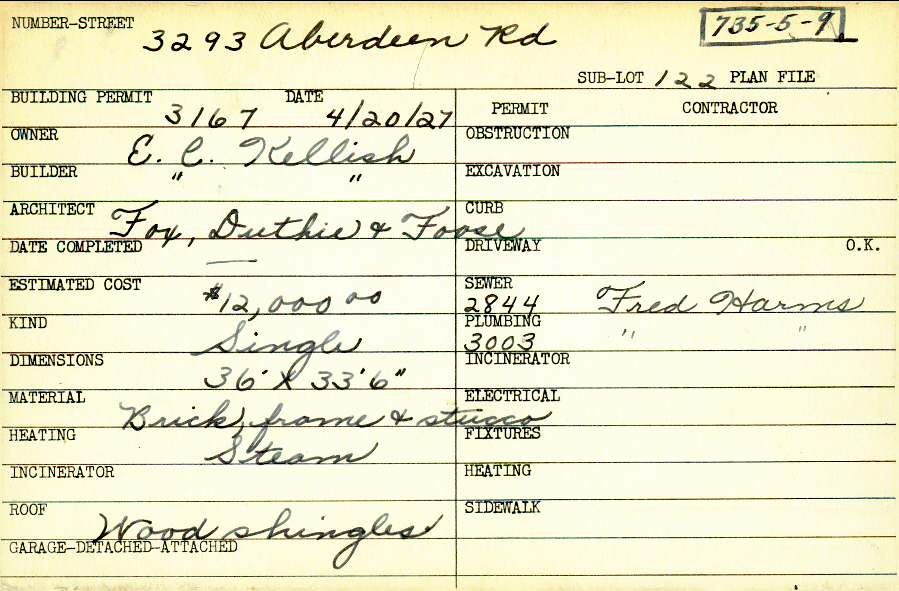 NUMBER-STREET 3293 Aberdeen Rd 735-5-9
SUB-LOT 122 PLAN FILE
BUILDING PERMIT 3167 DATE 4/20/27 PERMIT CONTRACTOR
OWNER E. C. Kellish OBSTRUCTION
BUILDER " " EXCAVATION
ARCHITECT Fox, Duthie & Foose CURB
DATE COMPLETED — DRIVEWAY O.K.
ESTIMATED COST $12,000 00 SEWER 2844 Fred Harms
KIND Single PLUMBING 3003 " "
DIMENSIONS 36' X 33'6" INCINERATOR
MATERIAL Brick, frame & stucco ELECTRICAL
HEATING Steam FIXTURES
INCINERATOR HEATING
ROOF Wood shingles SIDEWALK
GARAGE-DETACHED-ATTACHED